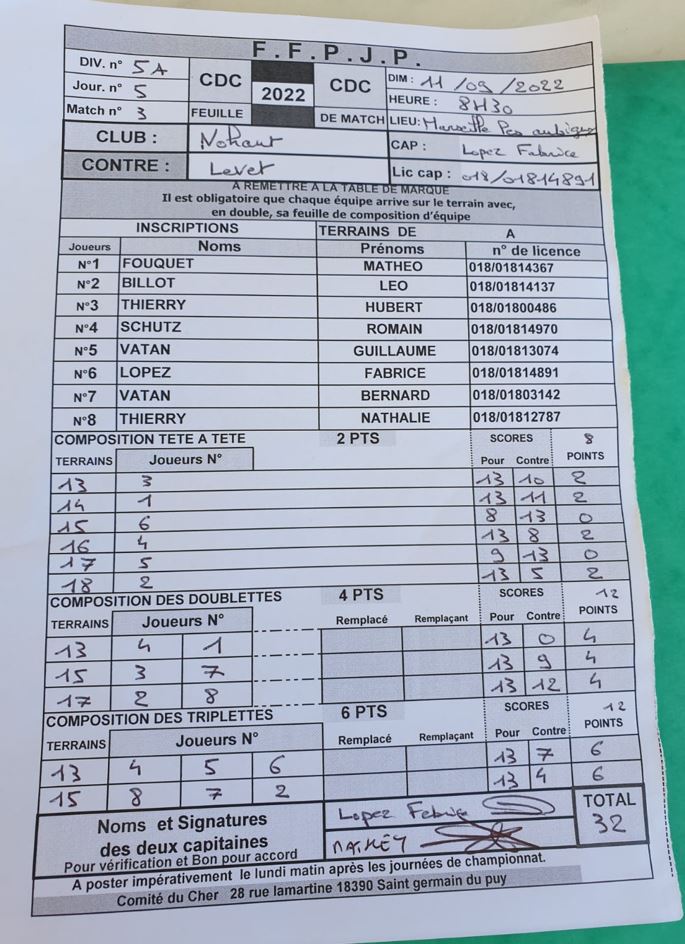 F.F.P.J.P.
DIV. n° 5A CDC 2022 CDC DIM : 11/09/2022
Jour. n° 5 HEURE : 8H30
Match n° 3 FEUILLE DE MATCH LIEU: Marseille Les aubigny
CLUB : Nohant CAP: Lopez Fabrice
CONTRE : Levet Lic cap : 018/01814891
A REMETTRE A LA TABLE DE MARQUE
Il est obligatoire que chaque équipe arrive sur le terrain avec,
en double, sa feuille de composition d'équipe
INSCRIPTIONS TERRAINS DE A
Joueurs Noms Prénoms n° de licence
N°1 FOUQUET MATHEO 018/01814367
N°2 BILLOT LEO 018/01814137
N°3 THIERRY HUBERT 018/01800486
N°4 SCHUTZ ROMAIN 018/01814970
N°5 VATAN GUILLAUME 018/01813074
N°6 LOPEZ FABRICE 018/01814891
N°7 VATAN BERNARD 018/01803142
N°8 THIERRY NATHALIE 018/01812787
COMPOSITION TETE A TETE 2 PTS SCORES 8
TERRAINS Joueurs N° Pour Contre POINTS
13 3 13 10 2
14 1 13 11 2
15 6 8 13 0
16 4 13 8 2
17 5 9 13 0
18 2 13 5 2
COMPOSITION DES DOUBLETTES 4 PTS SCORES 12
TERRAINS Joueurs N° Remplacé Remplaçant Pour Contre POINTS
13 4 1 13 0 4
15 3 7 13 9 4
17 2 8 13 12 4
COMPOSITION DES TRIPLETTES 6 PTS SCORES 12
TERRAINS Joueurs N° Remplacé Remplaçant Pour Contre POINTS
13 4 5 6 13 7 6
15 8 7 2 13 4 6
Noms et Signatures Lopez Fabrice TOTAL
des deux capitaines 32
Pour vérification et Bon pour accord
A poster impérativement le lundi matin après les journées de championnat.
Comité du Cher 28 rue lamartine 18390 Saint germain du puy